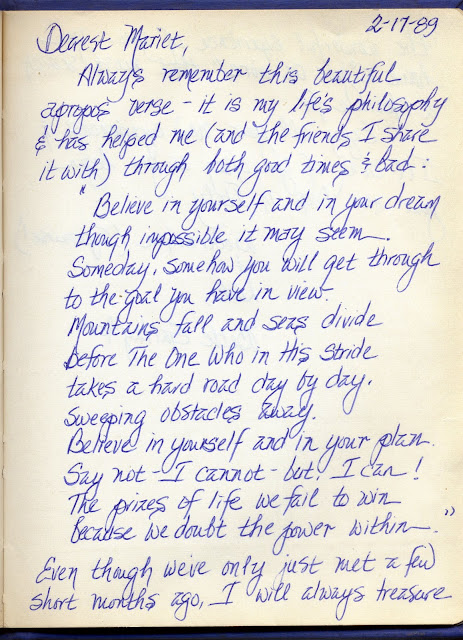 2-17-89
Dearest Mariet,
Always remember this beautiful
apropos verse - it is my life's philosophy
& has helped me (and the friends I share
it with) through both good times & bad:
"Believe in yourself and in your dream
though impossible it may seem.
Someday, somehow you will get through
to the goal you have in view.
Mountains fall and seas divide
before The One Who in His stride
takes a hard road day by day.
Sweeping obstacles away.
Believe in yourself and in your plan.
Say not - I cannot - but, I can!
The prizes of life we fail to win
Because we doubt the power within."
Even though we've only just met a few
short months ago, I will always treasure